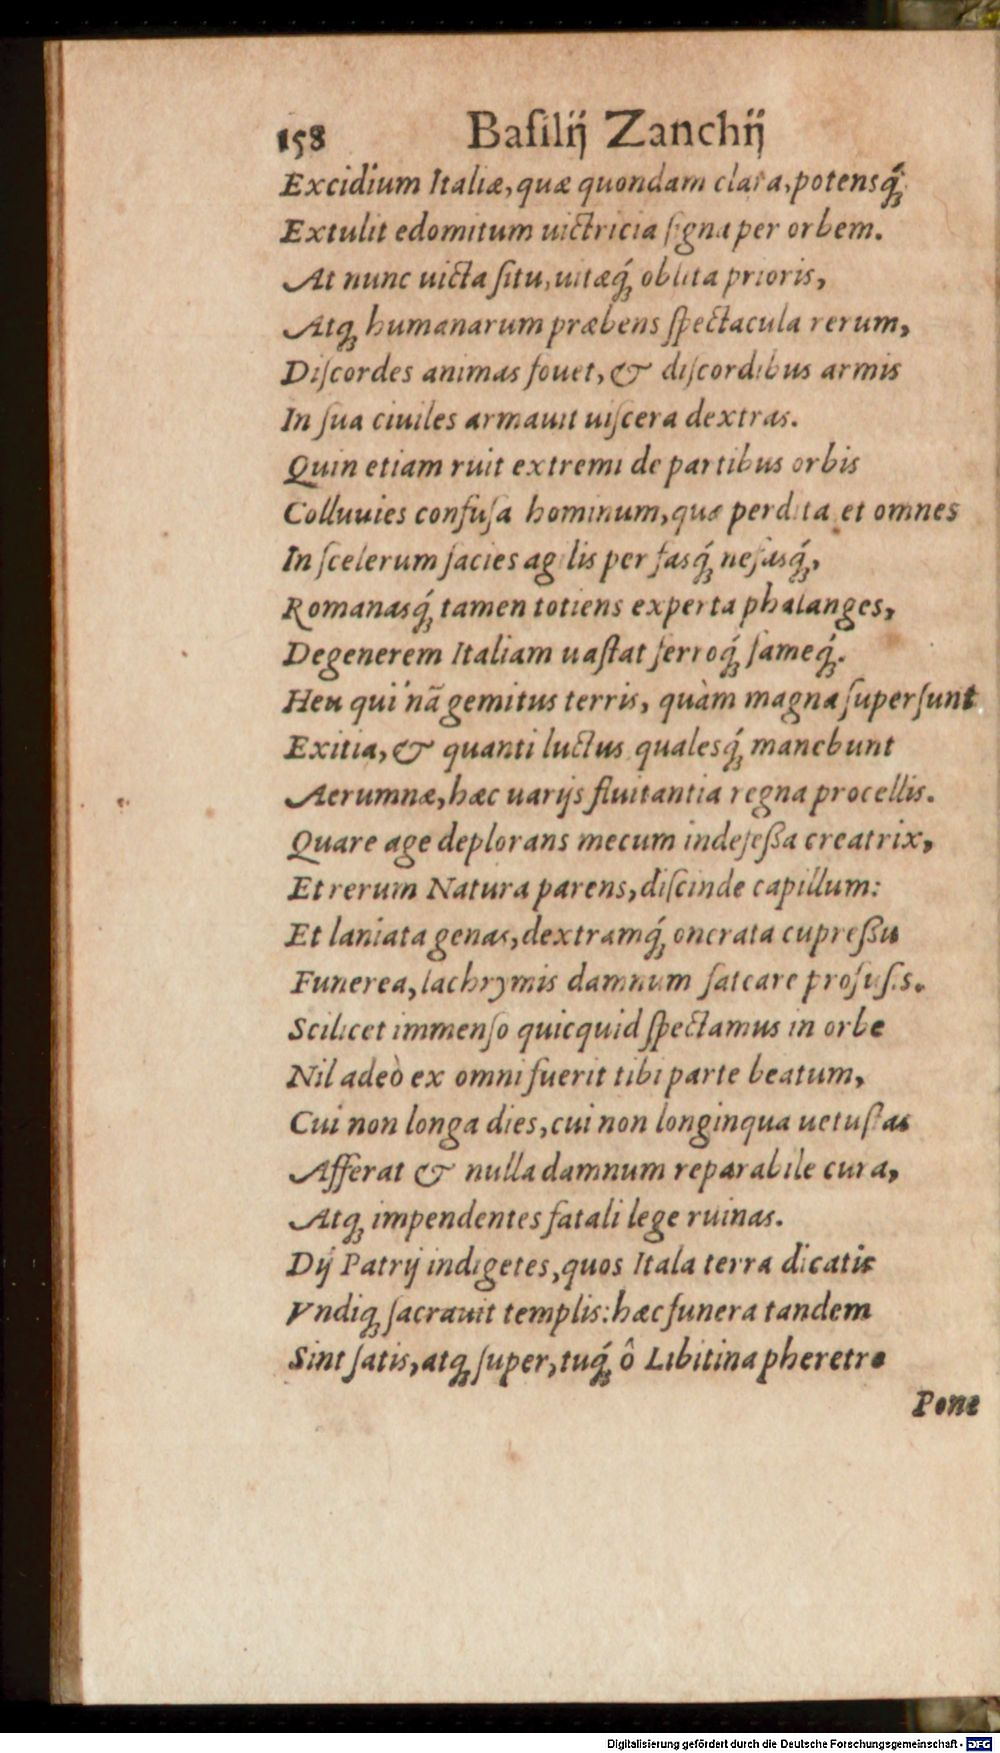 158 Baſilij Zanchij
Excidium Italiæ, quæ quondam clara, potensq́;
Extulit edomitum uictricia ſigna per orbem.
At nunc uicta ſitu, uitæq́; oblita prioris,
Atq; humanarum præbens ſpectacula rerum,
Diſcordes animas fouet, & diſcordibus armis
In ſua ciuiles armauit uiſcera dextras.
Quin etiam ruit extremi de partibus orbis
Colluuies confuſa hominum, quæ perdita et omnes
In ſcelerum facies agilis per fasq́; nefasq́;,
Romanasq́; tamen totiens experta phalanges,
Degenerem Italiam uaſtat ferroq́; fameq́;.
Heu qui nã gemitus terris, quàm magna ſuperſunt
Exitia, & quanti luctus qualesq́; manebunt
Aerumnæ, hæc uarijs fluitantia regna procellis.
Quare age deplorans mecum indefeßa creatrix,
Et rerum Natura parens, diſcinde capillum:
Et laniata genas, dextramq́; onerata cupreßu
Funerea, lachrymis damnum fateare profuſis.
Scilicet immenſo quicquid ſpectamus in orbe
Nil adeò ex omni fuerit tibi parte beatum,
Cui non longa dies, cui non longinqua uetuſtas
Afferat & nulla damnum reparabile cura,
Atq; impendentes fatali lege ruinas.
Dij Patrij indigetes, quos Itala terra dicatis
Vndiq; ſacrauit templis: hæc funera tandem
Sint ſatis, atq; ſuper, tuq́; ô Libitina pheretro
Pone
Digitalisierung gefördert durch die Deutsche Forschungsgemeinschaft - DFG